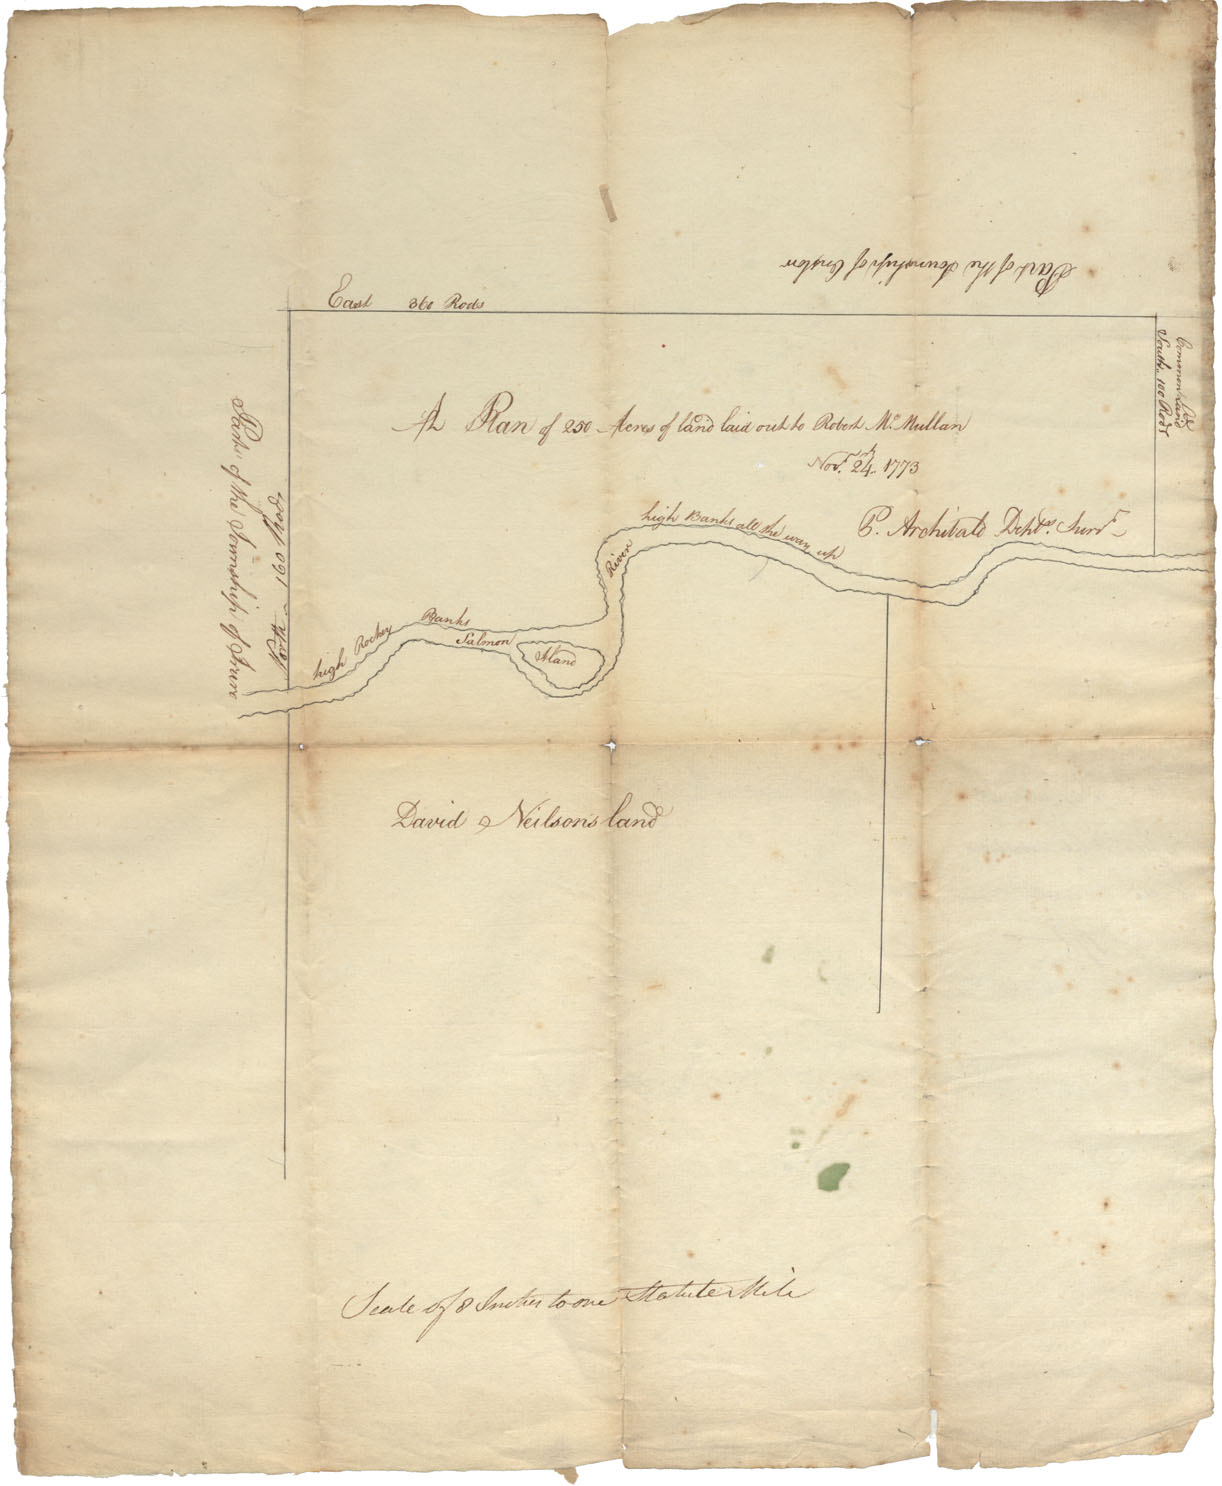 Part of the Township of Onslow
East 360 Rods
Common Land
South 100 Rods
A Plan of 250 Acres of land laid out to Robert Mc Mullan
Novr. 24. 1773
P. Archibald Depty. Survr
Part of the Township of Truro
North 160 Rods
high Banks all the way up
River
high Rockey Banks
Salmon
Island
David Neilsons land
Scale of 8 Inches to one Statute Mile